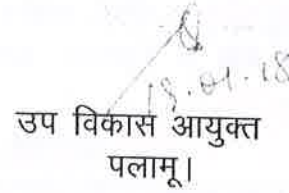 18.01.18
उप विकास आयुक्त
पलामू।